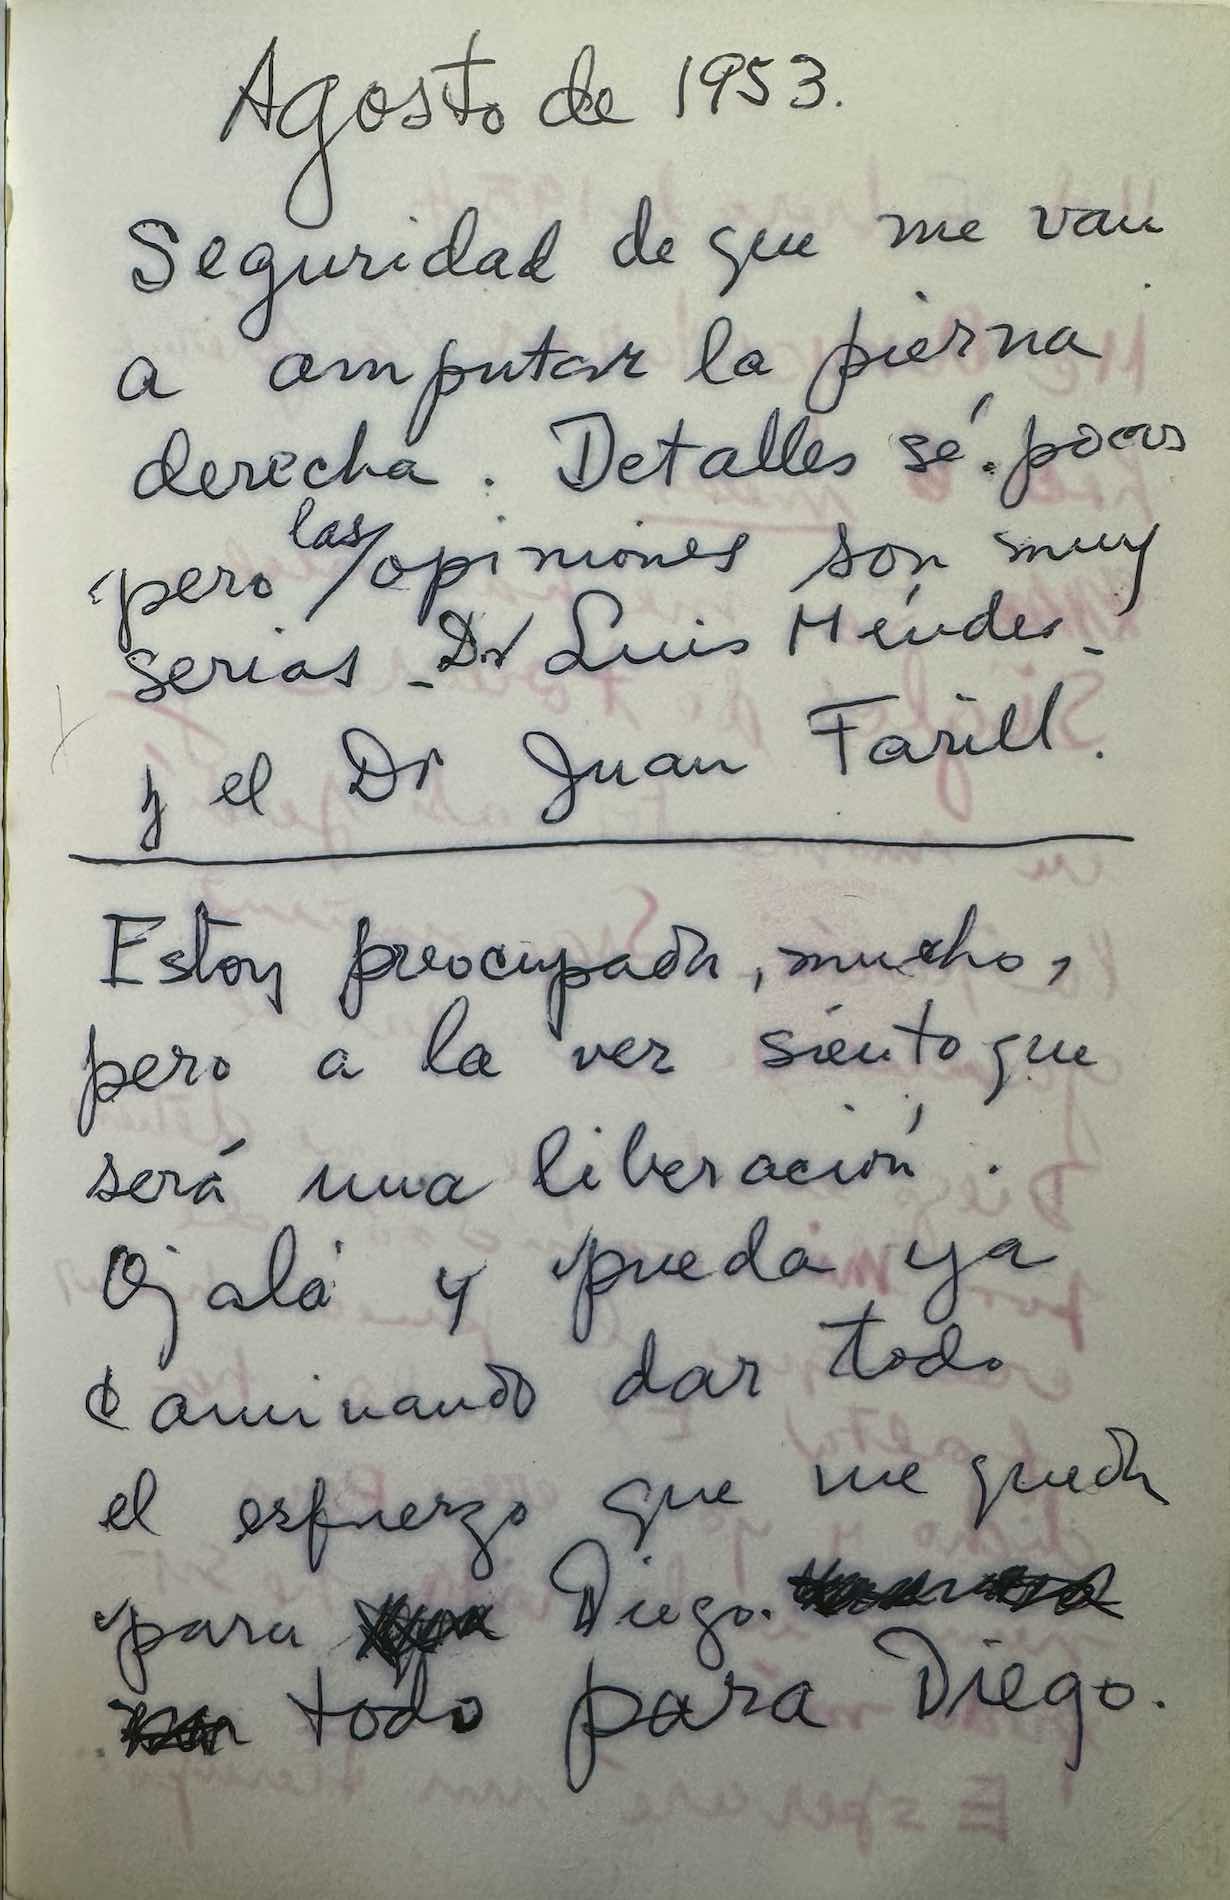 Agosto de 1953.
Seguridad de que me van
a amputar la pierna
derecha. Detalles sé pocos
pero las opiniones son muy
serias - Dr Luis Méndes -
y el Dr Juan Farill.
Estoy preocupada, mucho,
pero a la vez siento que
será una liberación.
Ojalá y pueda ya
caminando dar todo
el esfuerzo que me queda
para Diego.
todo para Diego.